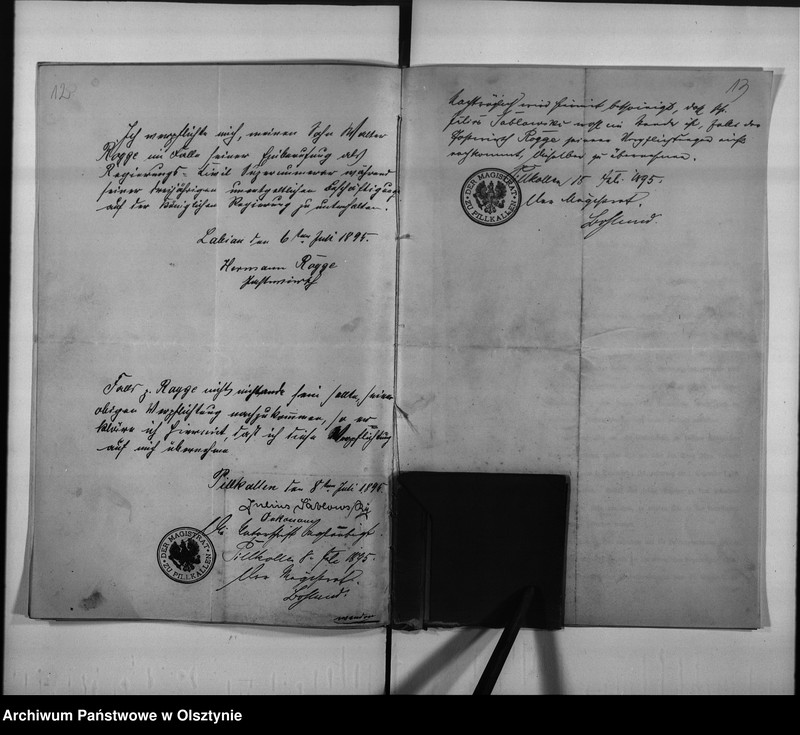 12
Ich verpflichte mich, meinen Sohn Walter
Rogge im Falle seiner Einberufung als
Regierungs-Civil Supernumerar während
seiner dreijährigen unentgeltlichen Beschäftigung
auf der Königlichen Regierung zu unterhalten.
Labiau den 6ten Juli 1895.
Hermann Rogge
Gastwirth
Falls p. Rogge nicht imstande sein sollte, seiner
obigen Verpflichtung nachzukommen, so er-
kläre ich hiermit, daß ich diese Verpflichtung
auf mich übernehme
Pillkallen den 8ten Juli 1895
Julius Sablowsky
Oekonom
Die Unterschrift beglaubigt.
Pillkallen 8. Juli 1895.
Der Magistrat.
DER MAGISTRAT
ZU PILLKALLEN
wenden
13
Nachträglich wird hiermit bescheinigt, daß Hr.
Julius Sablowski wohl im Stande ist, falls der
Rogge seinen Verpflichtungen nicht
nachkommt, dieselben zu übernehmen.
Pillkallen 18 Juli 1895.
Der Magistrat.
DER MAGISTRAT
ZU PILLKALLEN
Archiwum Państwowe w Olsztynie